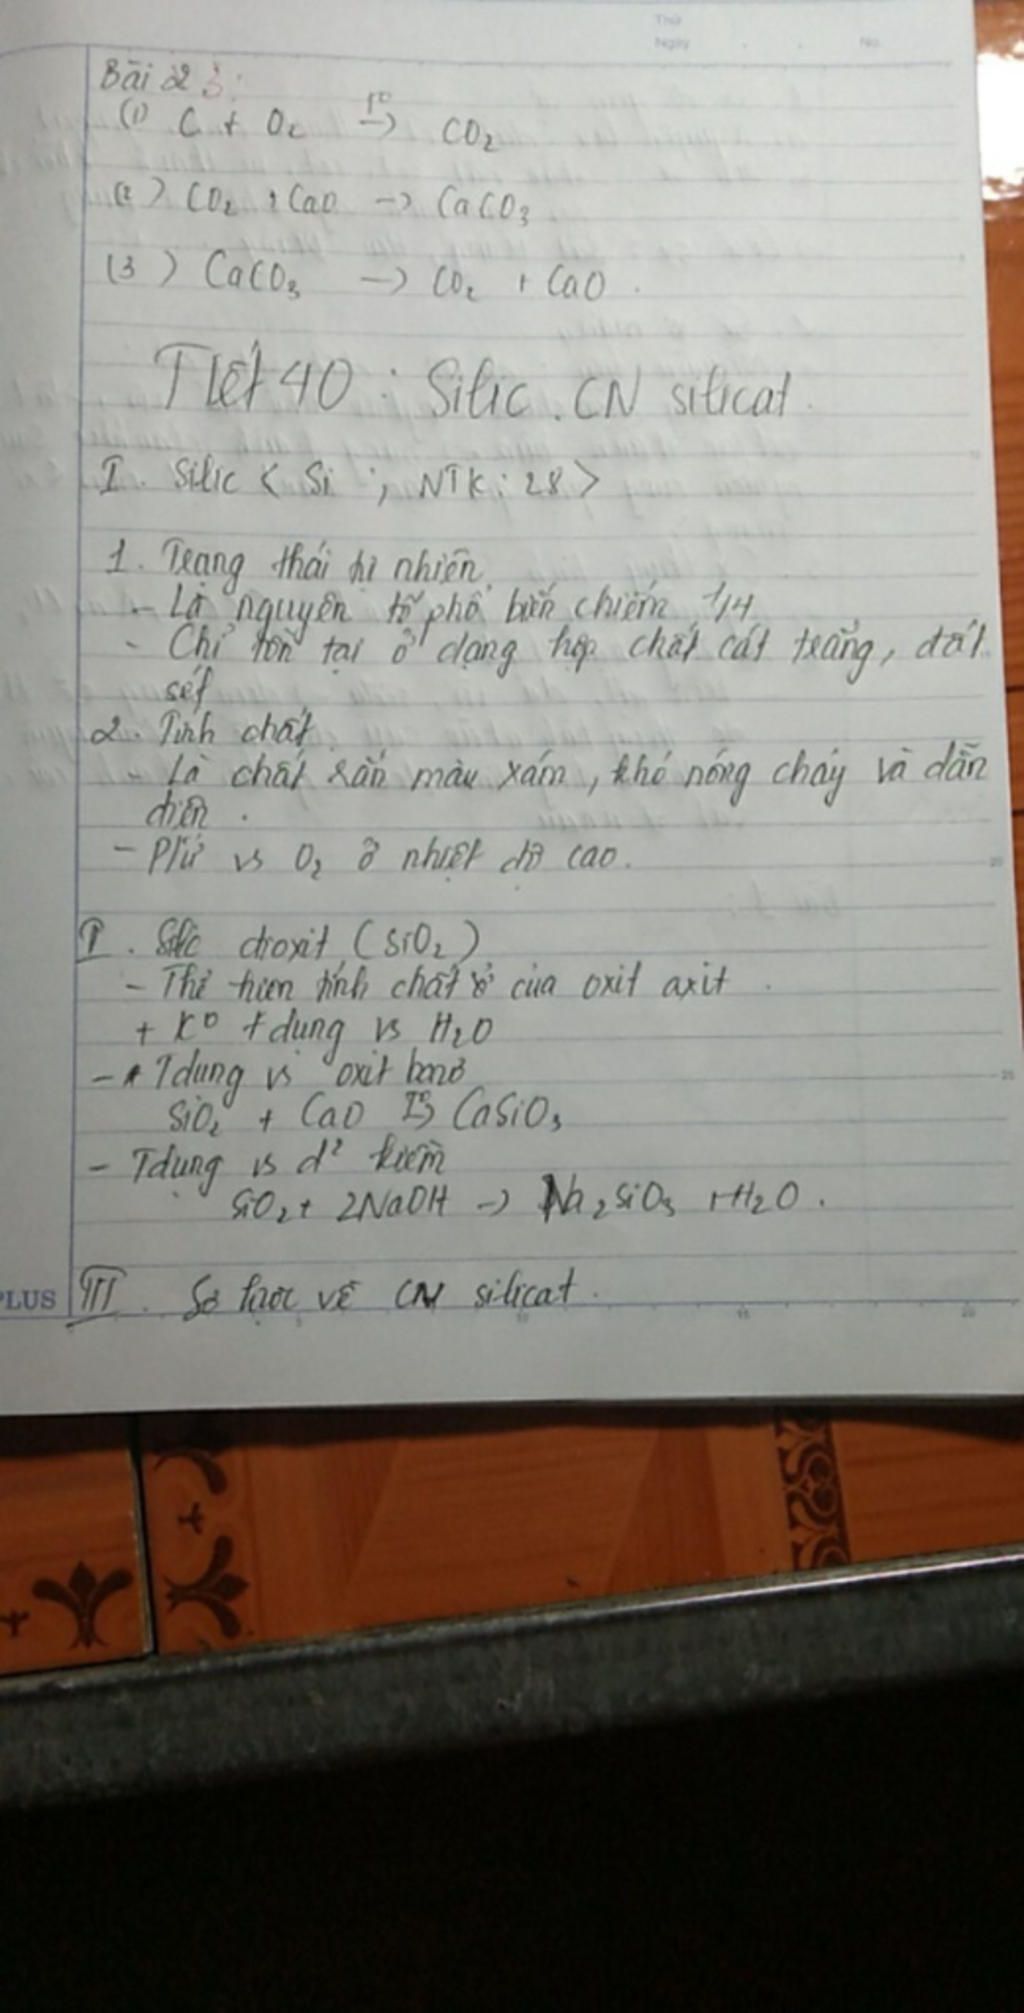 Thứ
Ngày . . No.
Bài 23:
(1) C + O₂ t⁰→ CO₂
(2) CO₂ + CaO → CaCO₃
(3) CaCO₃ → CO₂ + CaO.
Tiết 40: Silic. CN silicat.
I. Silic < Si ; NTK: 28 >
1. Trạng thái tự nhiên
- Là nguyên tố phổ biến chiếm 1/4
- Chỉ tồn tại ở dạng hợp chất cát trắng, đất
sét
2. Tính chất
- Là chất rắn màu xám, khó nóng chảy và dẫn
điện.
- Pứ vs O₂ ở nhiệt độ cao.
II. Silic đioxit (SiO₂)
- Thể hiện tính chất của oxit axit.
+ K⁰ tdụng vs H₂O
- Tdụng vs oxit bazơ
SiO₂ + CaO t⁰→ CaSiO₃
- Tdụng vs d² kiềm
SiO₂ + 2NaOH → Na₂SiO₃ + H₂O.
PLUS III. Sơ lược về CN silicat.
5 10 15 20